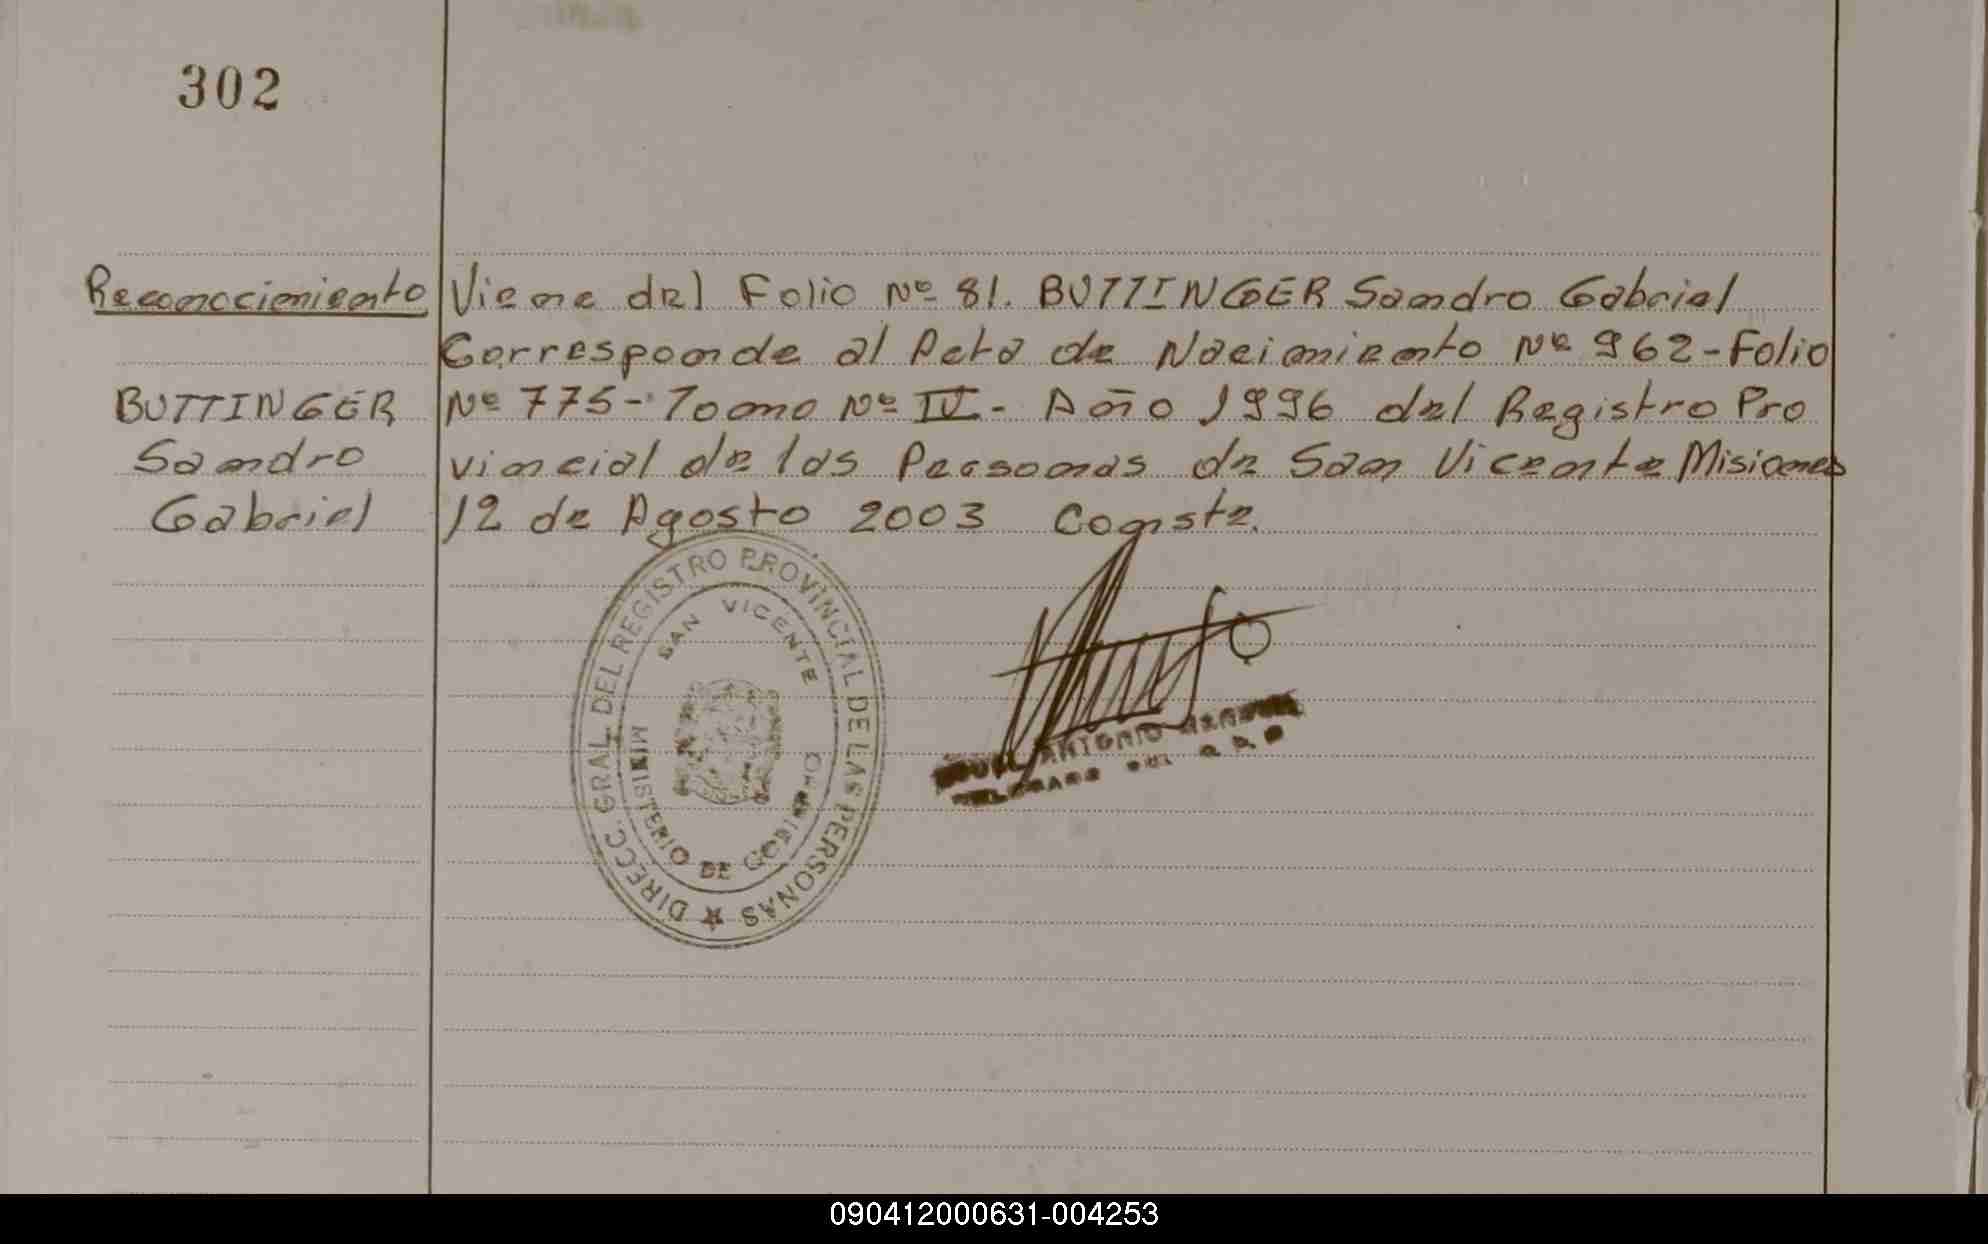 302
Reconocimiento
BUTTINGER
Sandro
Gabriel
Viene del Folio Nº 81. BUTTINGER Sandro Gabriel
Corresponde al Acta de Nacimiento Nº 962-Folio
Nº 775- Tomo Nº IV- Año 1996 del Registro Pro
vincial de las Personas de San Vicente Misiones
12 de Agosto 2003 Conste.
DIRECC. GRAL. DEL REGISTRO PROVINCIAL DE LAS PERSONAS
SAN VICENTE
MINISTERIO DE GOBIERNO
ANTONIO
090412000631-004253